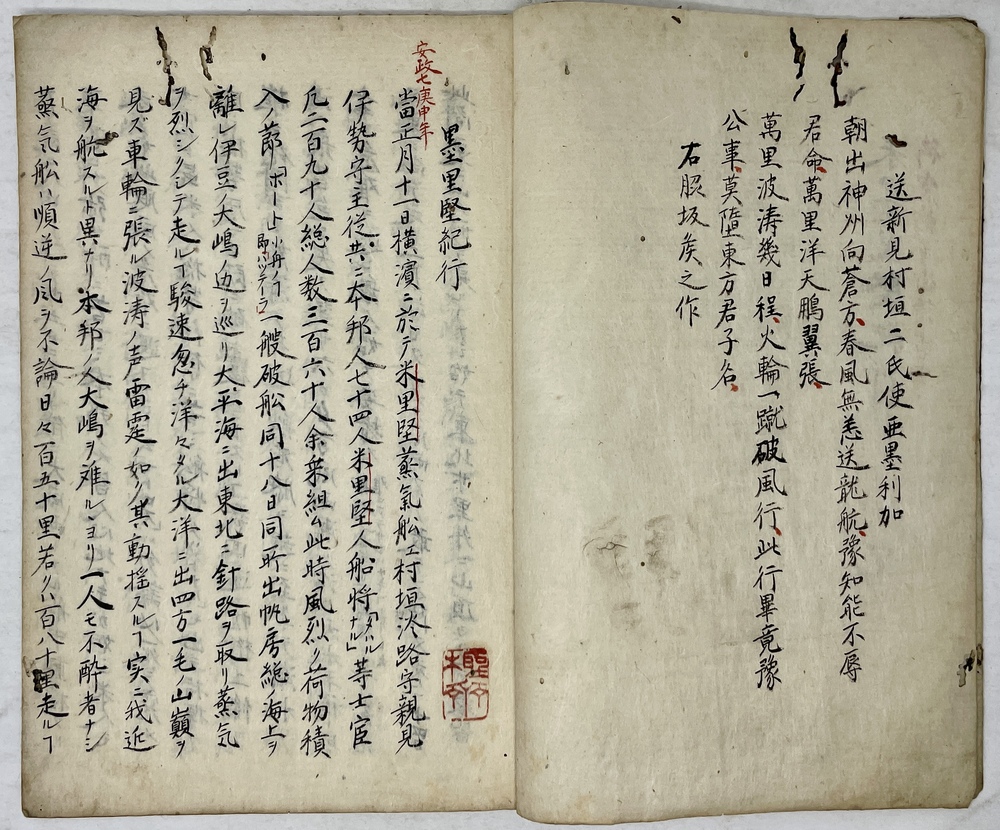 送新見村垣二氏使亜墨利加
朝出神州向蒼方春風無恙送龍航豫知能不辱
君命萬里洋天鵬翼張
萬里波涛幾日程火輪一蹴破風行此行畢竟豫
公事莫墮東方君子名
右脇坂侯之作
安政七庚申年
墨里堅紀行
當正月十一日横濱ニ於テ米里堅蒸氣舩ヱ村垣淡路守親見
伊勢守主従共ニ本邦人七十四人米里堅人船将「タハルナル」等士官
凡二百九十人総人数三百六十人余乗組ム此時風烈ク荷物積
入ノ節「ホート」小舟ノ即ハツテイラ一艘破舩同十八日同所出帆房総ノ海上ヲ
離レ伊豆ノ大嶋辺ヲ巡リ大平海ニ出東北ニ針路ヲ取リ蒸気
ヲ烈シクシテ走ルヿ駿速忽チ洋々タル大洋ニ出四方一毛ノ山巓ヲ
見ズ車輪ニ張ル波涛ノ声雷霆ノ如ク其動揺スルヿ実ニ我近
海ヲ航スルト異ナリ本邦ノ人大嶋ヲ难ルヽヨリ一人モ不酔者ナシ
蒸気舩ハ順逆ノ風ヲ不論日々百五十里若クハ百八十里走ルヿ